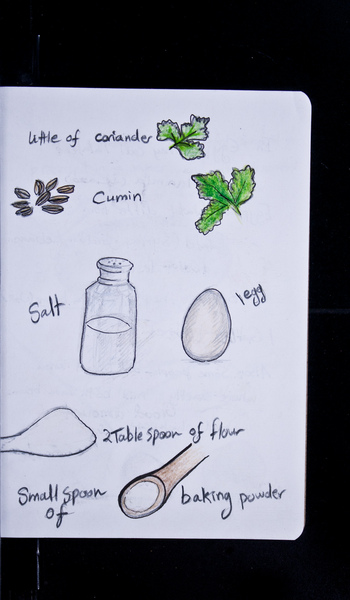 little of coriander
Cumin
Salt
1egg
2Table spoon of flour
Small spoon of baking powder